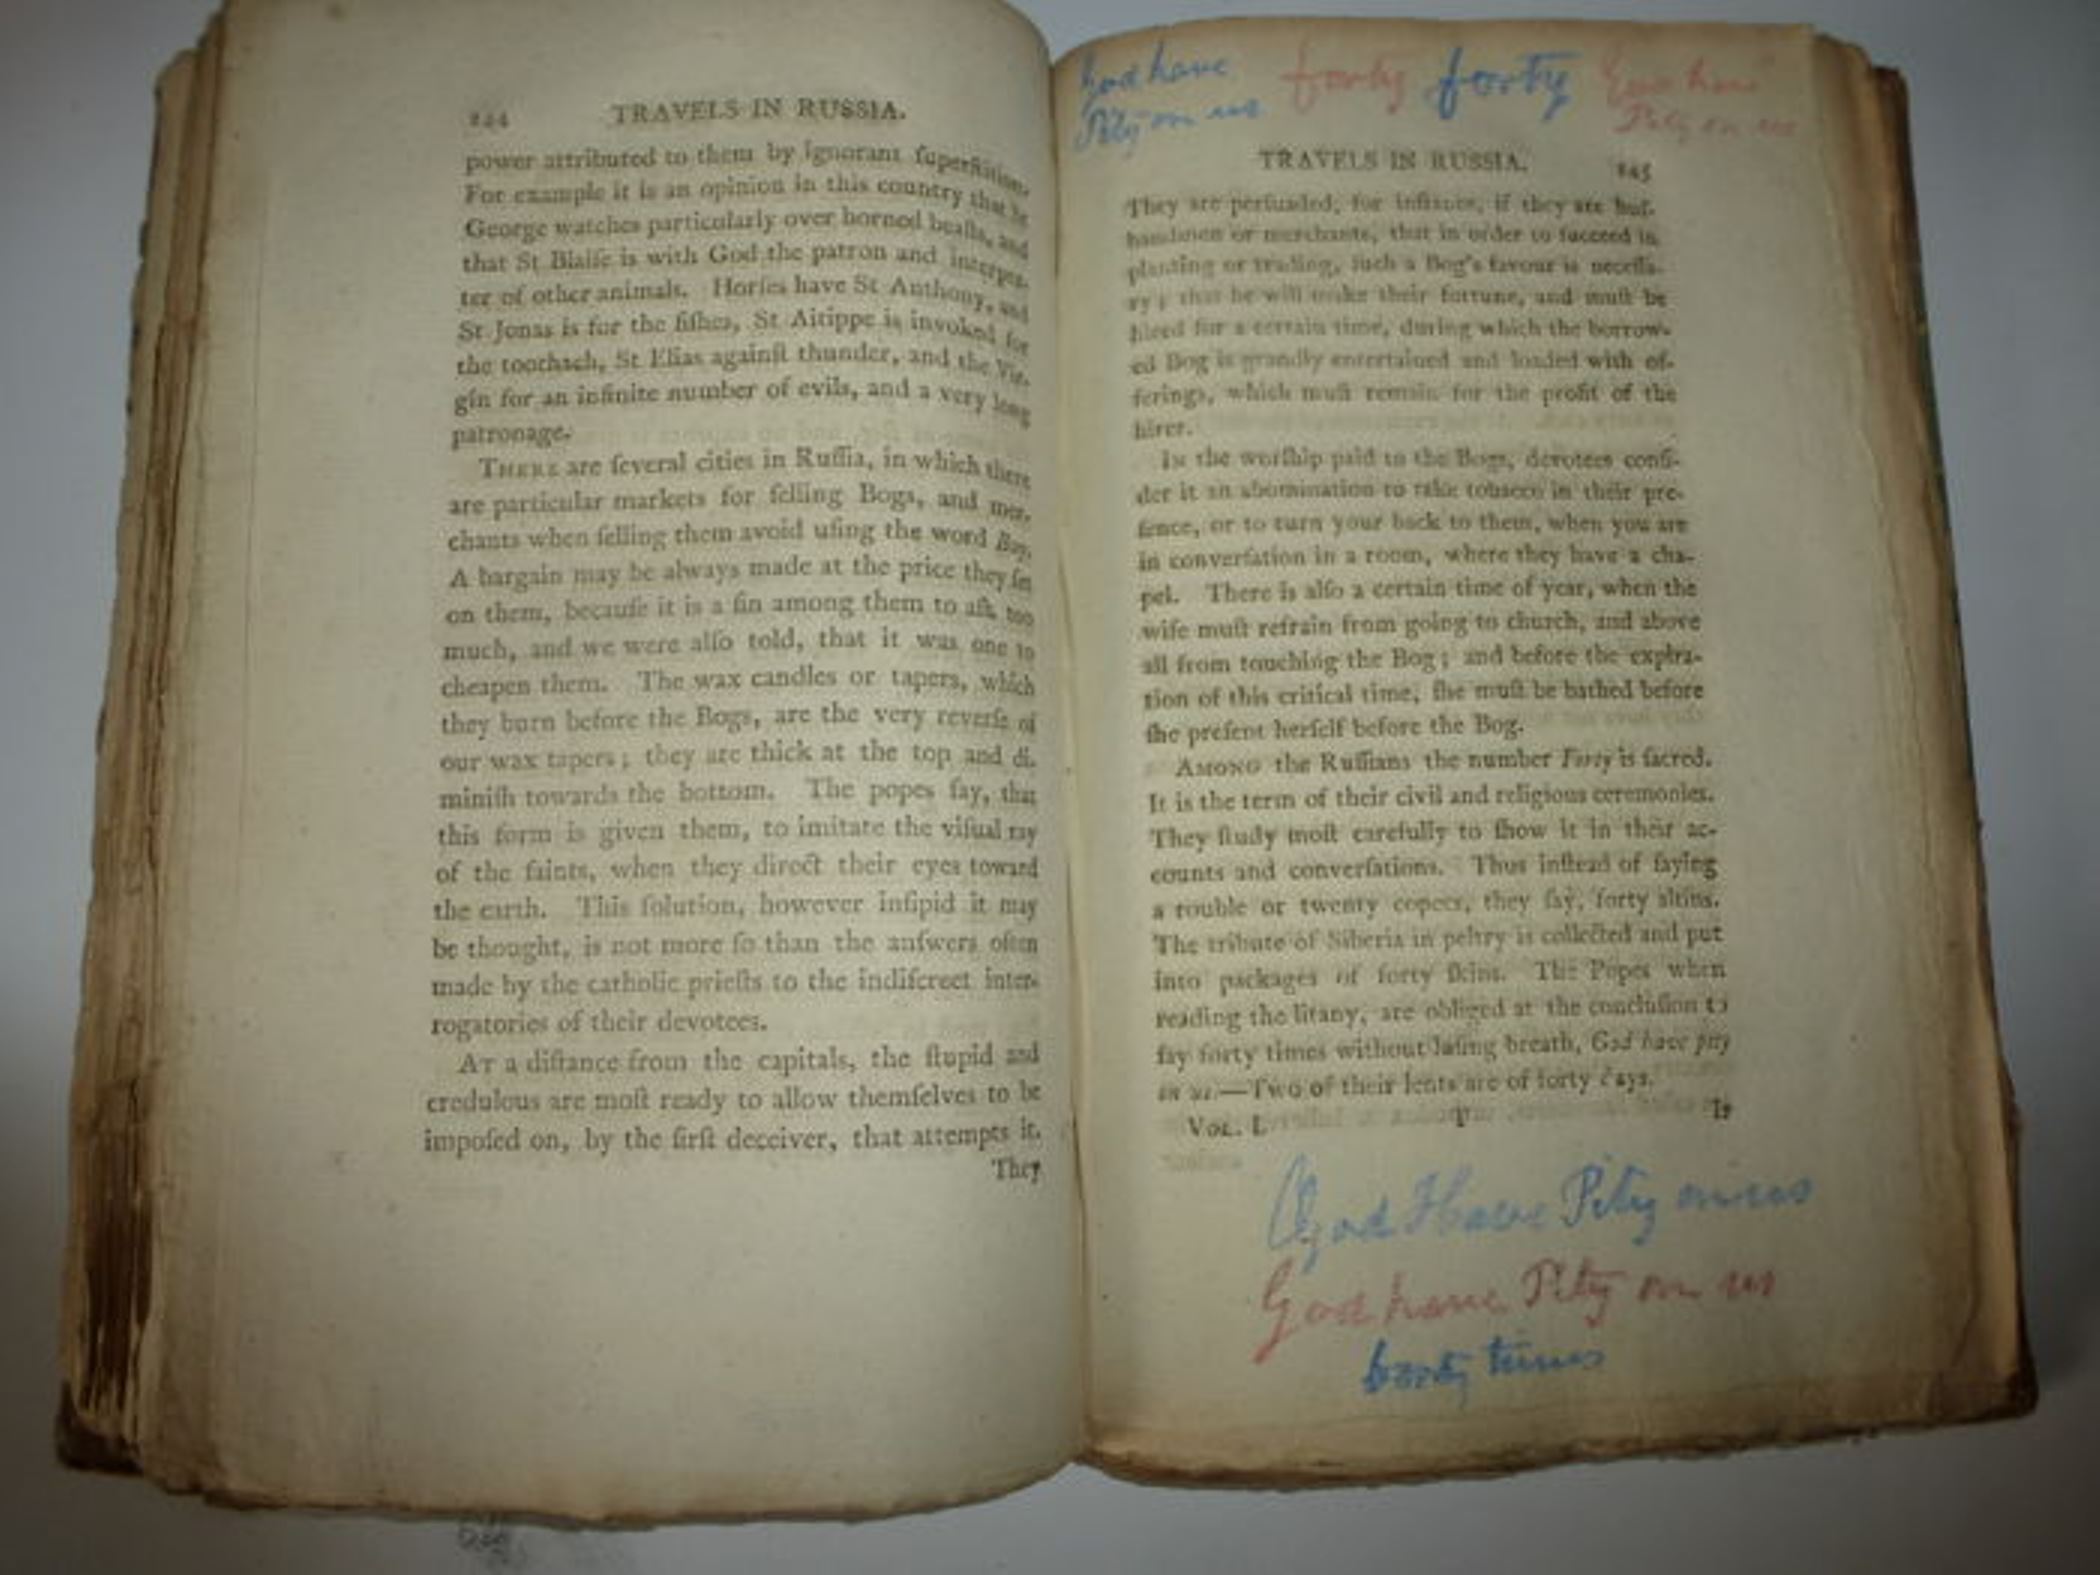 244 TRAVELS IN RUSSIA.
power attributed to them by ignorant ſuperſtition.
For example it is an opinion in this country that St
George watches particularly over horned beaſts, and
that St Blaiſe is with God the patron and interpre-
ter of other animals. Horſes have St Anthony, and
St Jonas is for the fiſhes, St Aitippe is invoked for
the toothach, St Elias againſt thunder, and the Vir-
gin for an infinite number of evils, and a very long
patronage.
THERE are ſeveral cities in Ruſſia, in which there
are particular markets for ſelling Bogs, and mer-
chants when ſelling them avoid uſing the word Buy.
A bargain may be always made at the price they ſet
on them, becauſe it is a ſin among them to aſk too
much, and we were alſo told, that it was one to
cheapen them. The wax candles or tapers, which
they burn before the Bogs, are the very reverſe of
our wax tapers; they are thick at the top and di-
miniſh towards the bottom. The popes ſay, that
this form is given them, to imitate the viſual ray
of the ſaints, when they direct their eyes toward
the earth. This ſolution, however inſipid it may
be thought, is not more ſo than the anſwers often
made by the catholic prieſts to the indiſcreet inter-
rogatories of their devotees.
AT a diſtance from the capitals, the ſtupid and
credulous are moſt ready to allow themſelves to be
impoſed on, by the firſt deceiver, that attempts it.
They
God have forty forty God have
Pity on us Pity on us
TRAVELS IN RUSSIA. 245
They are perſuaded, for inſtance, if they are huſ-
bandmen or merchants, that in order to ſucceed in
planting or trading, ſuch a Bog's favour is neceſſa-
ry; that he will make their fortune, and muſt be
hired for a certain time, during which the borrow-
ed Bog is grandly entertained and loaded with of-
ferings, which muſt remain for the profit of the
hirer.
IN the worſhip paid to the Bogs, devotees conſi-
der it an abomination to take tobacco in their pre-
ſence, or to turn your back to them, when you are
in converſation in a room, where they have a cha-
pel. There is alſo a certain time of year, when the
wife muſt refrain from going to church, and above
all from touching the Bog; and before the expira-
tion of this critical time, ſhe muſt be bathed before
ſhe preſent herſelf before the Bog.
AMONG the Ruſſians the number Forty is ſacred.
It is the term of their civil and religious ceremonies.
They ſtudy moſt carefully to ſhow it in their ac-
counts and converſations. Thus inſtead of ſaying
a rouble or twenty copecs, they ſay, forty altins.
The tribute of Siberia in peltry is collected and put
into packages of forty ſkins. The Popes when
reading the litany, are obliged at the concluſion to
ſay forty times without loſing breath, God have pity
on us.—Two of their lents are of forty days.
VOL. I. It
God Have Pity on us
God have Pity on us
forty times